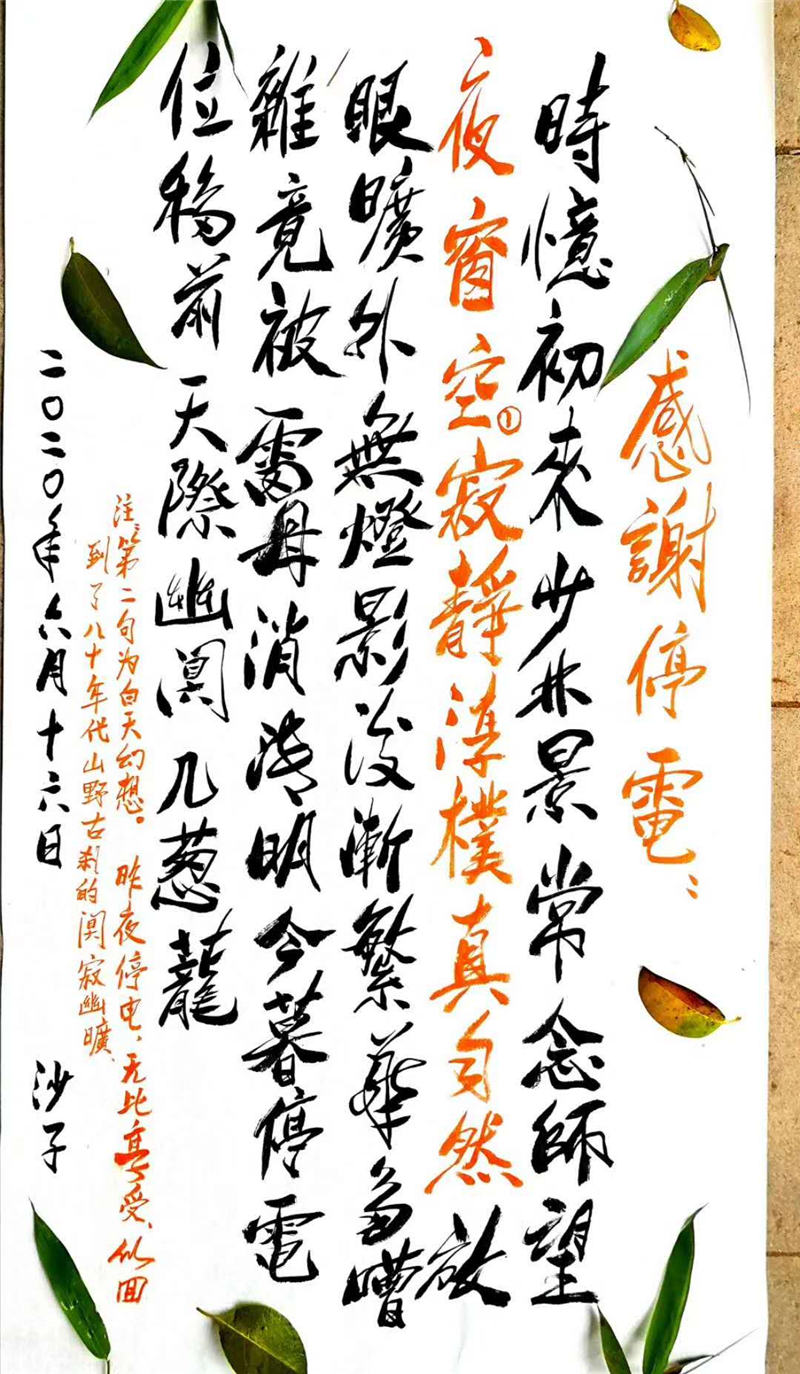 感謝停電：
時憶初來少林景常念師望
夜窗空①寂靜淳樸真自然放
眼曠外無燈影後漸繁華多嘈
雜竟被雷母消清明今暮停電
位移前天際幽闃几葱蘢
注：第二句为白天幻想。昨夜停电，无比享受，似回
到了八十年代山野古刹的闃寂幽曠。
二〇二〇年六月十六日 沙子